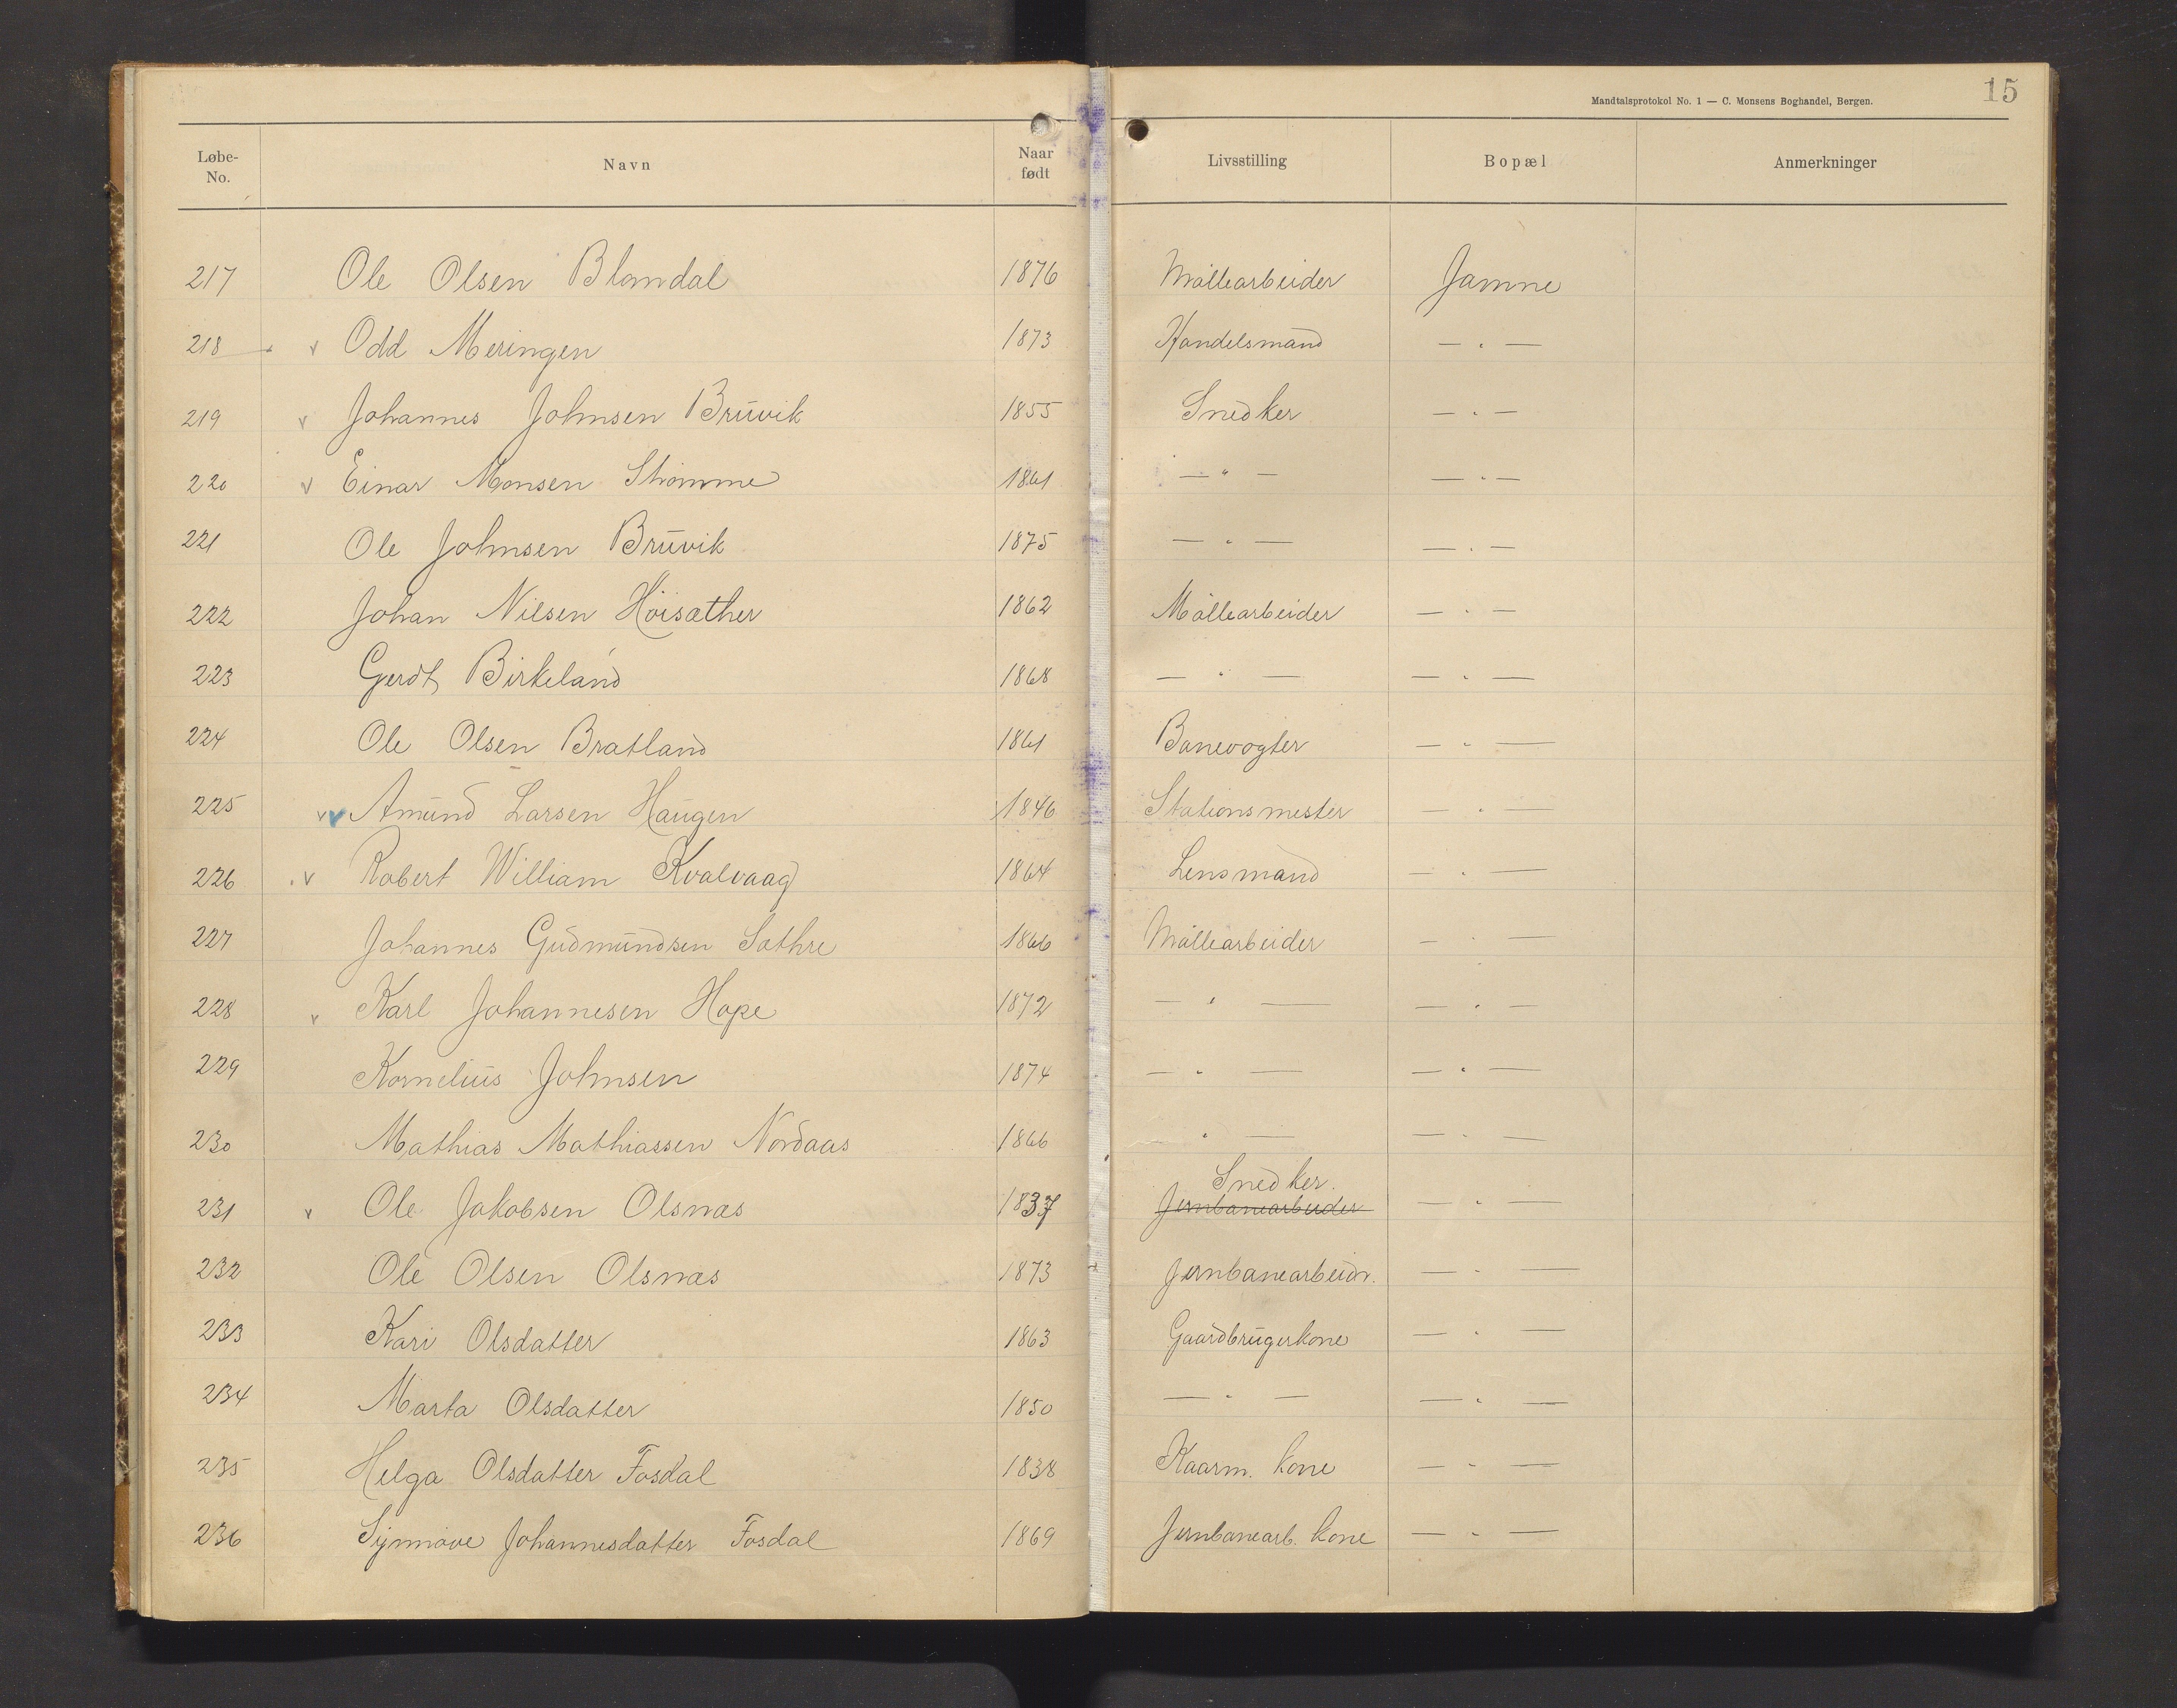 Mandtalsprotokol No. 1 — C. Monsens Boghandel, Bergen.
15
Løbe-No. Navn Naar født Livsstilling Bopæl Anmerkninger
217 Ole Olsen Blomdal 1876 Møllearbeider Jamne
218 v Odd Meringen 1873 Handelsmand — " —
219 v Johannes Johnsen Bruvik 1855 Snedker — " —
220 v Einar Monsen Stromme 1861 — " — — " —
221 Ole Johnsen Bruvik 1875 — " — — " —
222 Johan Nilsen Höisæther 1862 Møllearbeider — " —
223 Gerdt Birkeland 1868 — " — — " —
224 Ole Olsen Bratland 1861 Banevogter — " —
225 vv Amund Larsen Haugen 1846 Stationsmester — " —
226 . v Robert William Kvalvaag 1864 Lensmand — " —
227 Johannes Gudmundsen Sæthre 1866 Møllearbeider — " —
228 v Karl Johannesen Hope 1872 — " — — " —
229 Kornelius Johnsen 1874 — " — — " —
230 Mathias Mathiassen Nordaas 1866 — " — — " —
231 v Ole Jakobsen Olsnæs 1837 Snedker. Jernbanearbeider — " —
232 Ole Olsen Olsnæs 1873 Jernbanearbeidr. — " —
233 Kari Olsdatter 1863 Gaardbrugerkone — " —
234 Marta Olsdatter 1850 — " — — " —
235 Helga Olsdatter Fosdal 1838 Kaarm. kone — " —
236 Synnøve Johannesdatter Fosdal 1869 Jernbanearb. kone — " —